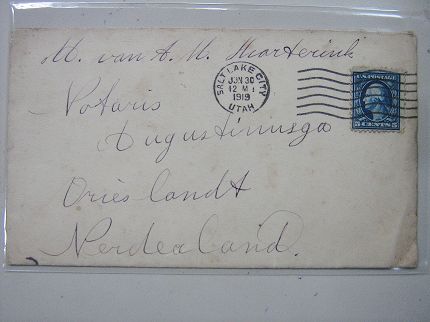 M. van A. M. Hearterink
SALT LAKE CITY
JUN 30
12 M
1919
UTAH
1
U.S. POSTAGE
5 CENTS 5
Notaris
Augustinusga
Vrieslandt
Nederland.